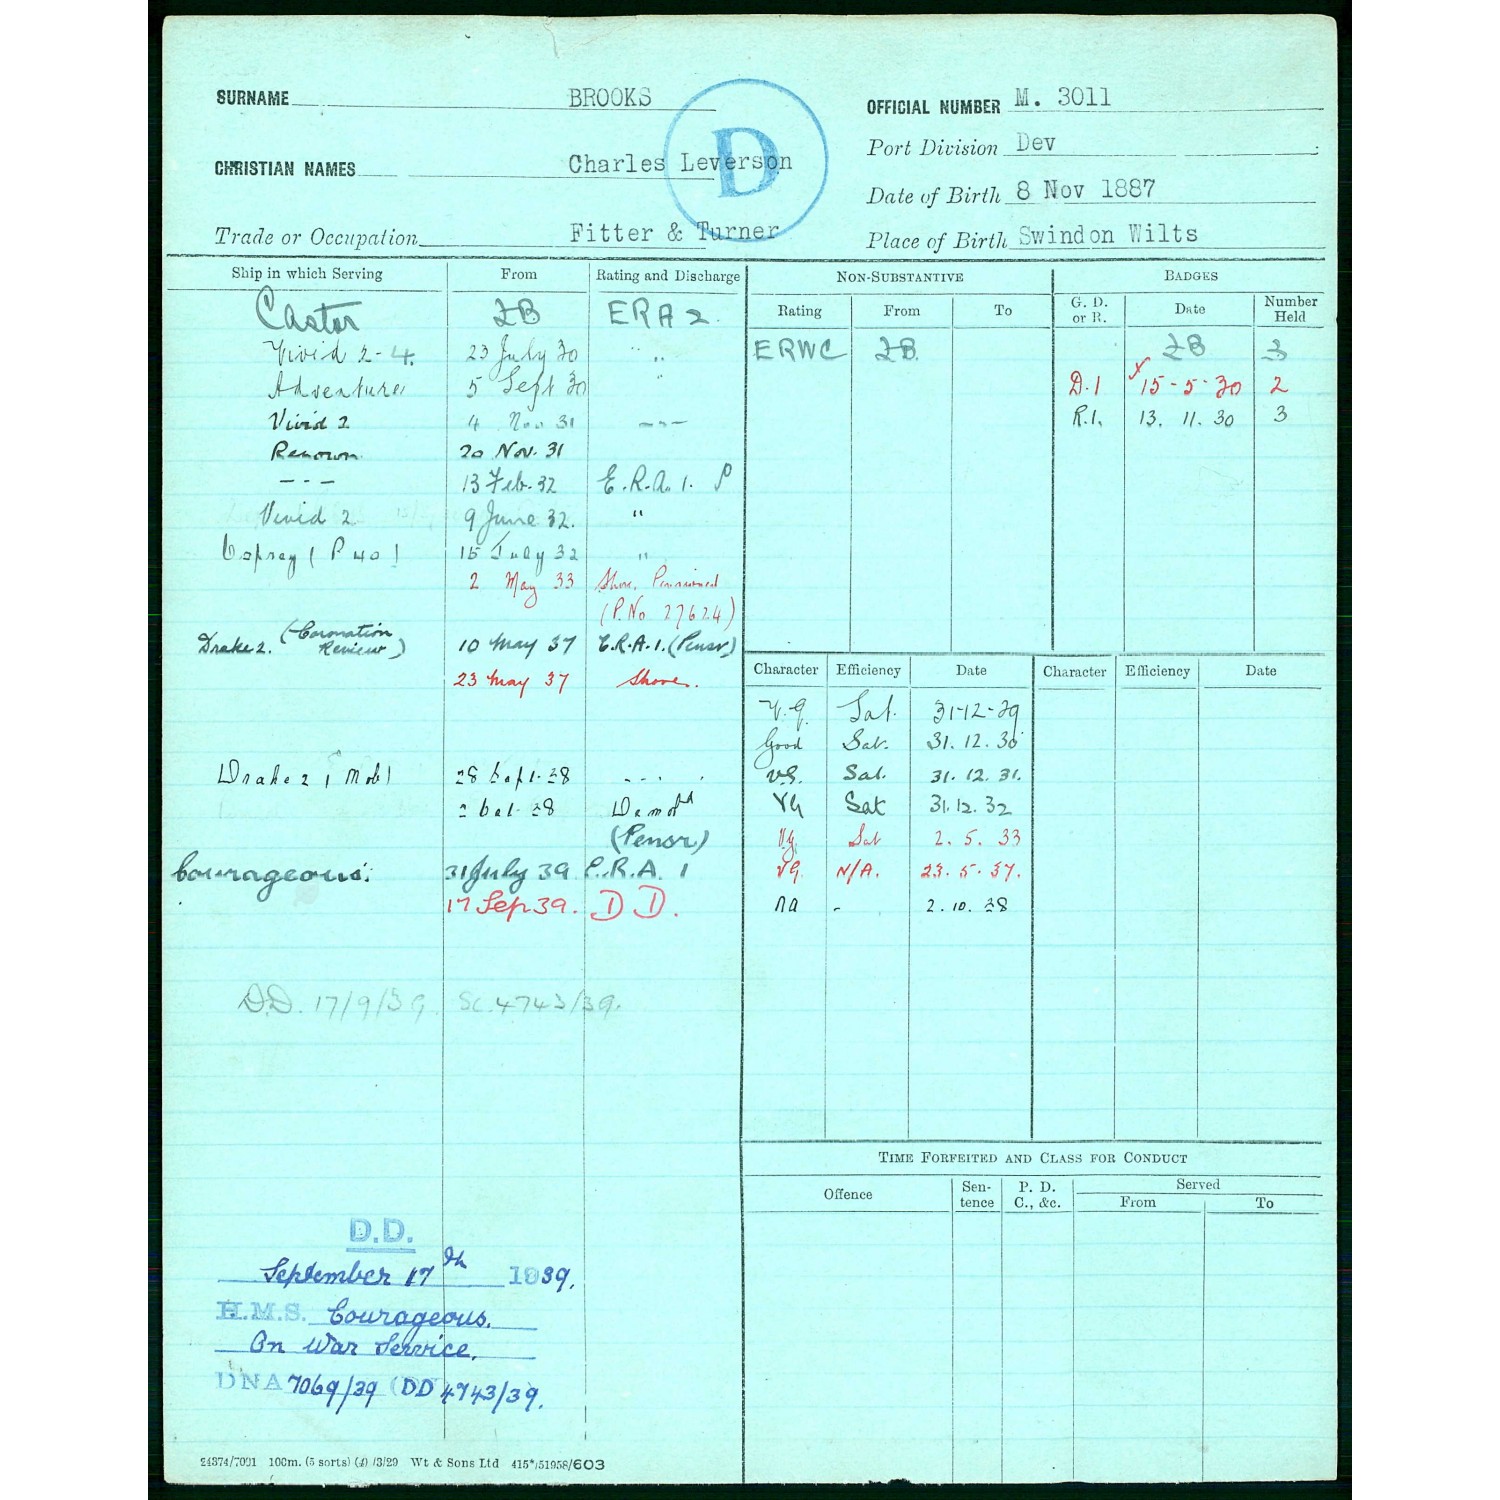 SURNAME BROOKS
OFFICIAL NUMBER M. 3011
Port Division Dev
CHRISTIAN NAMES Charles Leverson
D
Date of Birth 8 Nov 1887
Trade or Occupation Fitter & Turner
Place of Birth Swindon Wilts
Ship in which Serving From Rating and Discharge
Castor ERA 2.
Vivid 2-4. 23 July 30 " "
Adventure 5 Sept 30 "
Vivid 2 4 Nov 31 ---
Renown 20 Nov. 31
--- 13 Feb. 32 E.R.A. 1.
Vivid 2 9 June 32. "
Osprey (P 40) 15 July 32 "
2 May 33 Shore. Pensioned
(P.No 27624)
Drake 2. (Coronation Review) 10 May 37 E.R.A.1. (Pensr)
23 May 37 Shore.
Drake 2 (Mob) 28 Sept. 38 - - -
2 Oct. 38 Demobd
(Pensr)
Courageous. 31 July 39 E.R.A. 1
17 Sep 39. D D.
D.D. 17/9/39. Sc. 4743/39.
D.D.
September 17th 1939.
H.M.S. Courageous.
On War Service.
DNA 7069/39 (DD 4743/39.
NON-SUBSTANTIVE
Rating From To
ERWC
BADGES
G. D. or R. Date Number Held
3
D.1 x 15-5-30 2
R.1. 13. 11. 30 3
Character Efficiency Date Character Efficiency Date
V.G. Sat. 31-12-29
Good Sat. 31. 12. 30
V.G. Sat. 31. 12. 31.
VG Sat 31.12.32
VG Sat 2. 5. 33
VG. N/A. 23. 5. 37.
NA - 2. 10. 38
TIME FORFEITED AND CLASS FOR CONDUCT
Offence Sen-tence P. D. C., &c. Served
From To
24374/7091 100m. (5 sorts) (4) /3/29 Wt & Sons Ltd 415*/51958/603